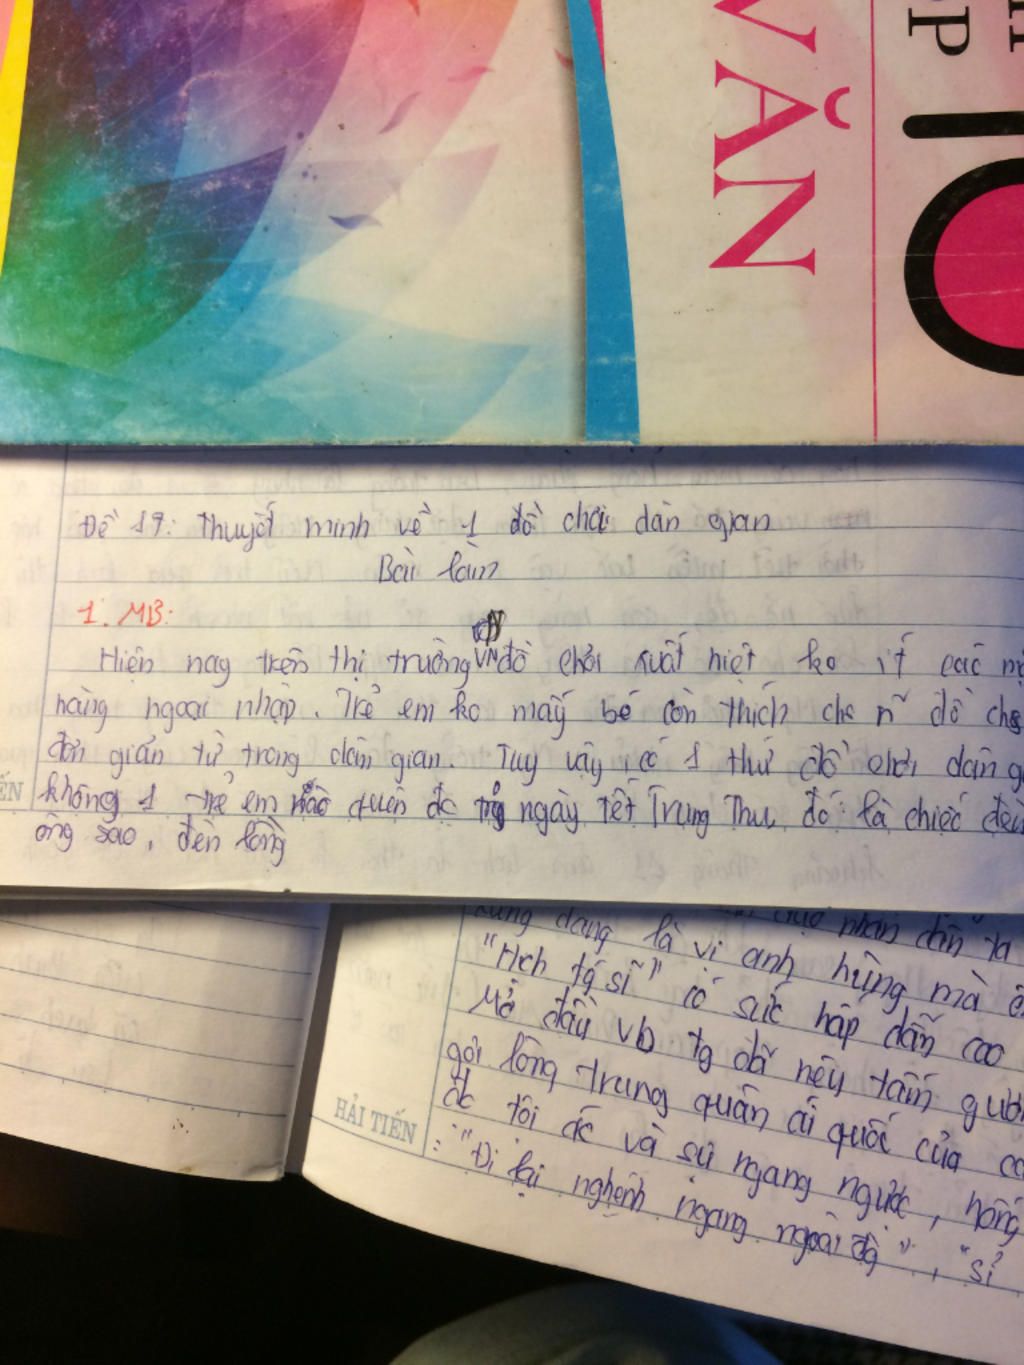 VĂN
10
Đề 19: Thuyết minh về 1 đồ chơi dân gian
Bài làm
1. MB:
VN
Hiện nay trên thị trường đồ chơi xuất hiệt ko ít các
hàng ngoại nhập. Trẻ em ko mấy bé còn thích chơ n~ đồ chơ
đơn giản từ trong dân gian. Tuy vậy, có 1 thứ đồ chơi dân
không 1 trẻ em nào quên đc ngày tết Trung Thu, đó là chiếc đèn
ông sao, đèn lồng
nhân dân ta
là vị anh hùng mà
"Hịch tg sĩ" có sức hấp dẫn cao
Mở đầu vb tg đã nêu tấm gươ
gợi lòng trung quân ái quốc của
đc tội ác và sự ngang ngược, hống
: "Đi lại nghênh ngang ngoài đg", "sỉ
HẢI TIẾN